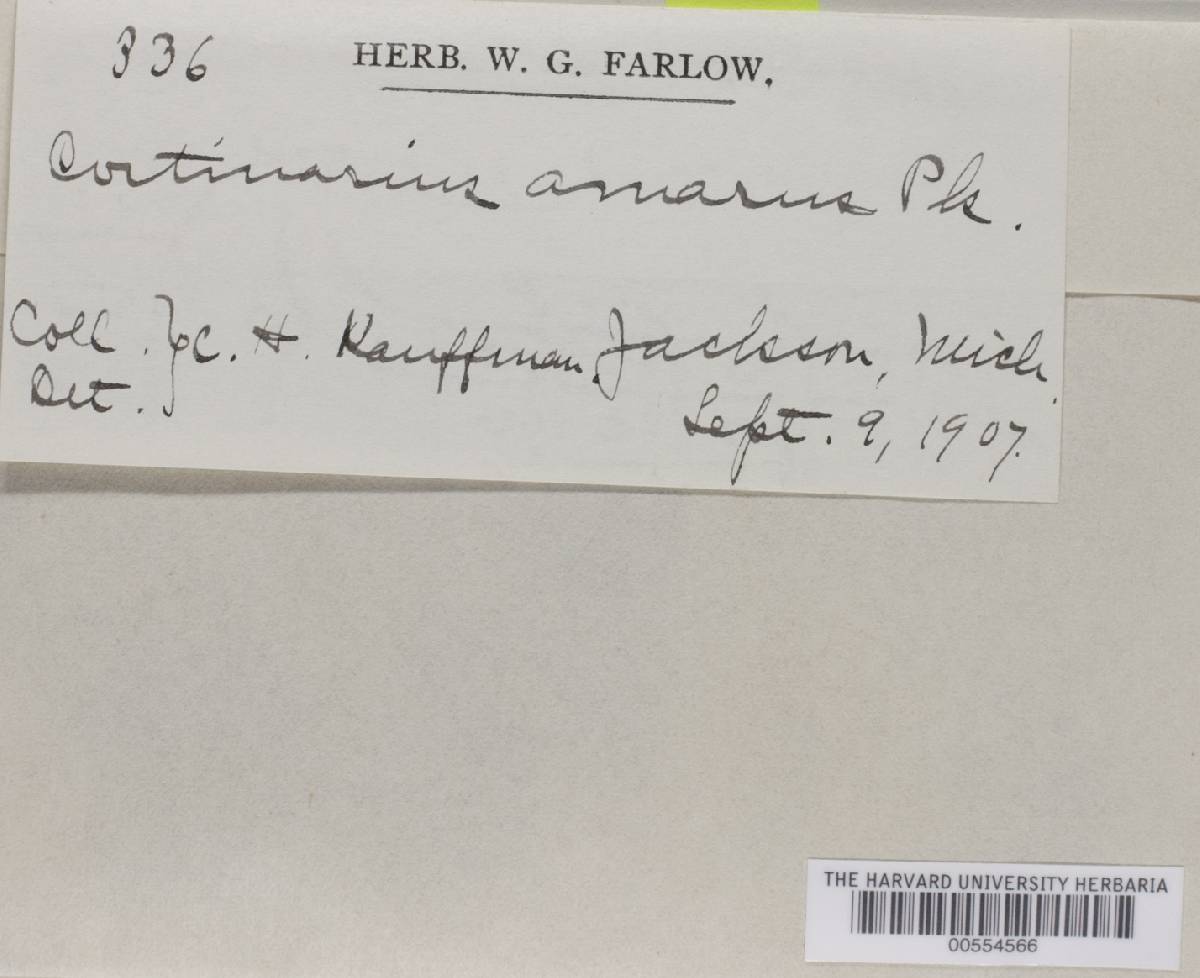 336 HERB. W. G. FARLOW.
Cortinarius amarus Pk.
Coll. } C. H. Kauffman. Jackson, Mich.
Det. } Sept. 9, 1907.
THE HARVARD UNIVERSITY HERBARIA
00554566